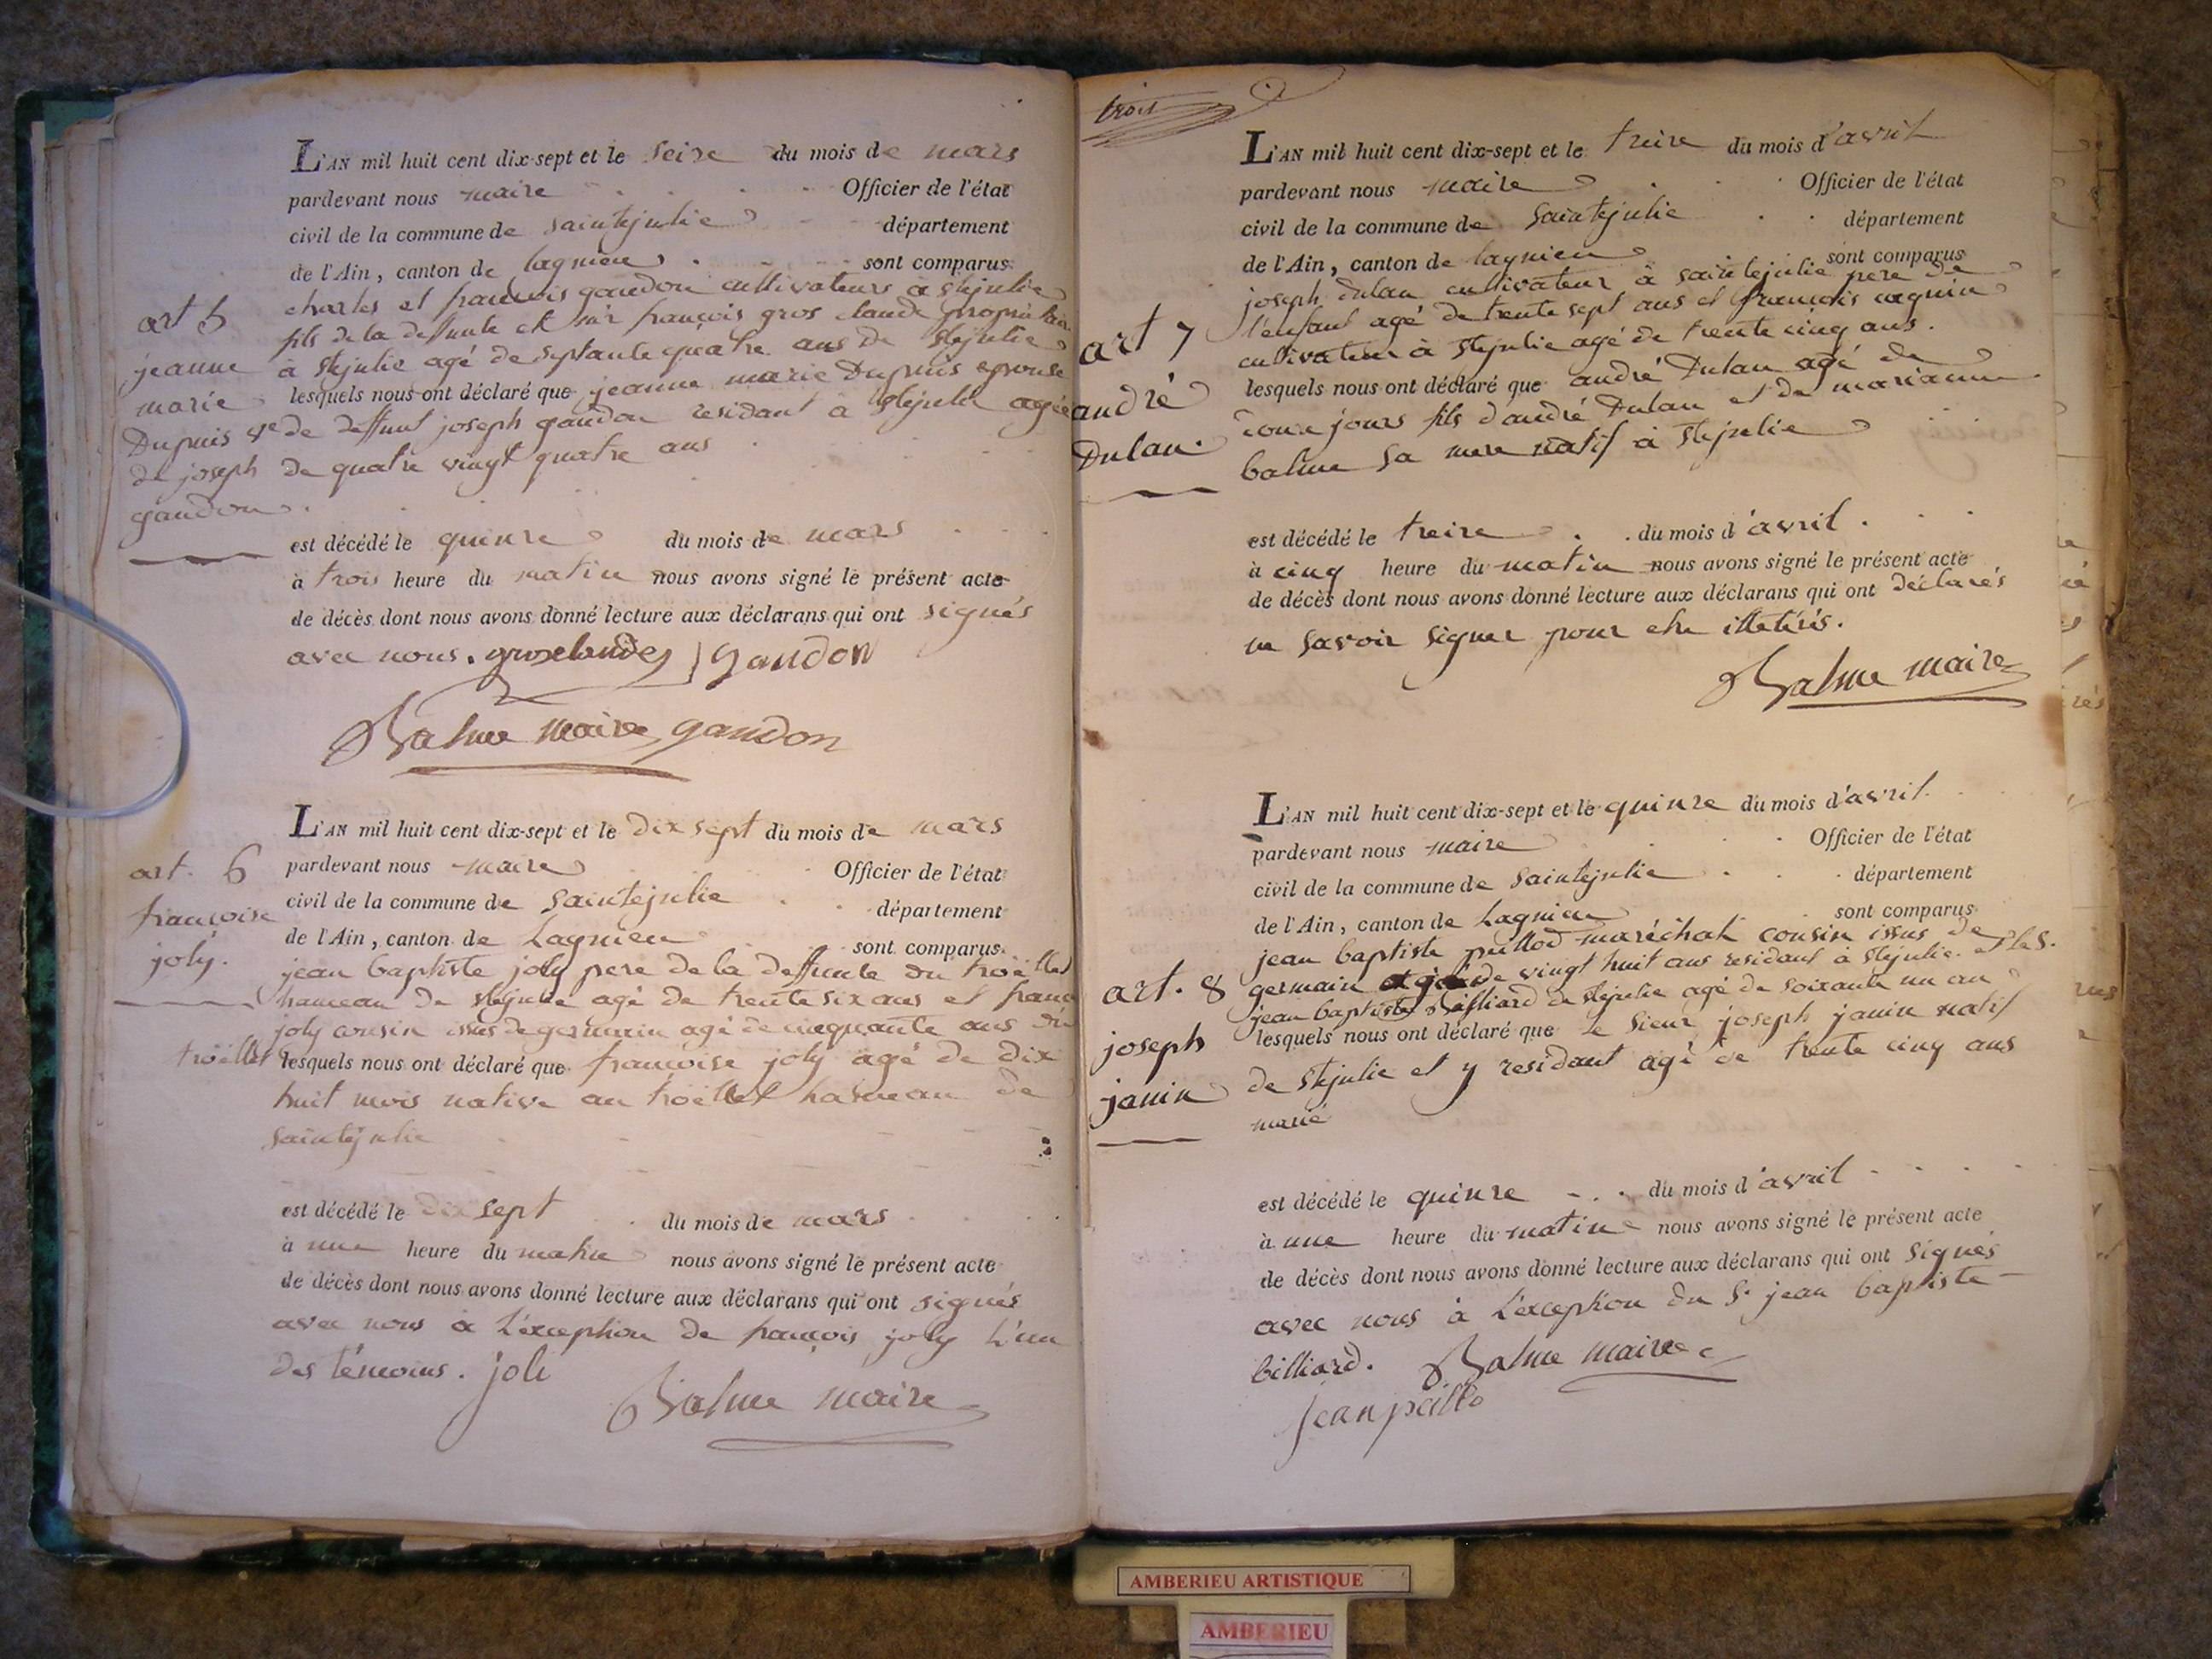 L'AN mil huit cent dix-sept et le seize du mois de mars
pardevant nous maire Officier de l'état
civil de la commune de saintejulie département
de l'Ain, canton de lagnieu sont comparus
charles et francois gaudon cultivateurs a stejulie
fils de la deffunte et sieur françois gros claude propriétaire
à stejulie agé de septante quatre ans de stejulie
lesquels nous ont déclaré que jeanne marie Dupuis epouse
de deffunt joseph gaudon residant a stejulie agée
de quatre vingt quatre ans
art 5
jeanne
marie
Dupuis ve
de joseph
gaudon
est décédé le quinze du mois de mars
à trois heure du matin nous avons signé le présent acte
de décès dont nous avons donné lecture aux déclarans qui ont signés
avec nous. grosclaude gaudon
Balme maire gaudon
L'AN mil huit cent dix-sept et le dix sept du mois de mars
pardevant nous maire Officier de l'état
civil de la commune de Saintejulie département
de l'Ain, canton de Lagnieu sont comparus
jean baptiste joly pere de la deffunte du troëllet
hameau de stejulie agé de trente six ans et
joly cousin issus de germain agé de cinquante ans du
troëllet lesquels nous ont déclaré que françoise joly agé de dix
huit mois native au troëllet hameau de
saintejulie
art. 6
françoise
joly.
est décédé le dix sept du mois de mars
à une heure du matin nous avons signé le présent acte
de décès dont nous avons donné lecture aux déclarans qui ont signés
avec nous a L'exception de françois joly L'un
des témoins. joli
Balme maire
trois
L'AN mil huit cent dix-sept et le treize du mois d'avril
pardevant nous maire Officier de l'état
civil de la commune de Saintejulie département
de l'Ain, canton de lagnieu sont comparus
joseph Dulau cultivateur à saintejulie pere de
l'enfant agé de trente sept ans et françois cagnin
cultivateur à stejulie agé de trente cinq ans.
lesquels nous ont déclaré que andré Dulau agé de
jours fils d'andré Dulau et de marianne
balme sa mere natif à stejulie
art 7
andré
Dulau.
est décédé le treize du mois d'avril.
à cinq heure du matin nous avons signé le présent acte
de décès dont nous avons donné lecture aux déclarans qui ont déclarés
ne savoir signer pour etre illetérés.
Balme maire
L'AN mil huit cent dix-sept et le quinze du mois d'avril.
pardevant nous maire Officier de l'état
civil de la commune de Saintejulie département
de l'Ain, canton de Lagnieu sont comparus
jean baptiste peillod maréchal cousin issus de
germain agé de vingt huit ans residant à stejulie. et le S.
jean baptiste Billiard de stejulie agé de soixante un an
lesquels nous ont déclaré que Le Sieur joseph janin natif
de stejulie et y residant agé de trente cinq ans
marié
art. 8
joseph
janin
est décédé le quinze du mois d'avril
à une heure du matin nous avons signé le présent acte
de décès dont nous avons donné lecture aux déclarans qui ont signés
avec nous à L'exception du S. jean baptiste
billiard. Balme maire
jean peillo
AMBERIEU ARTISTIQUE
AMBERIEU